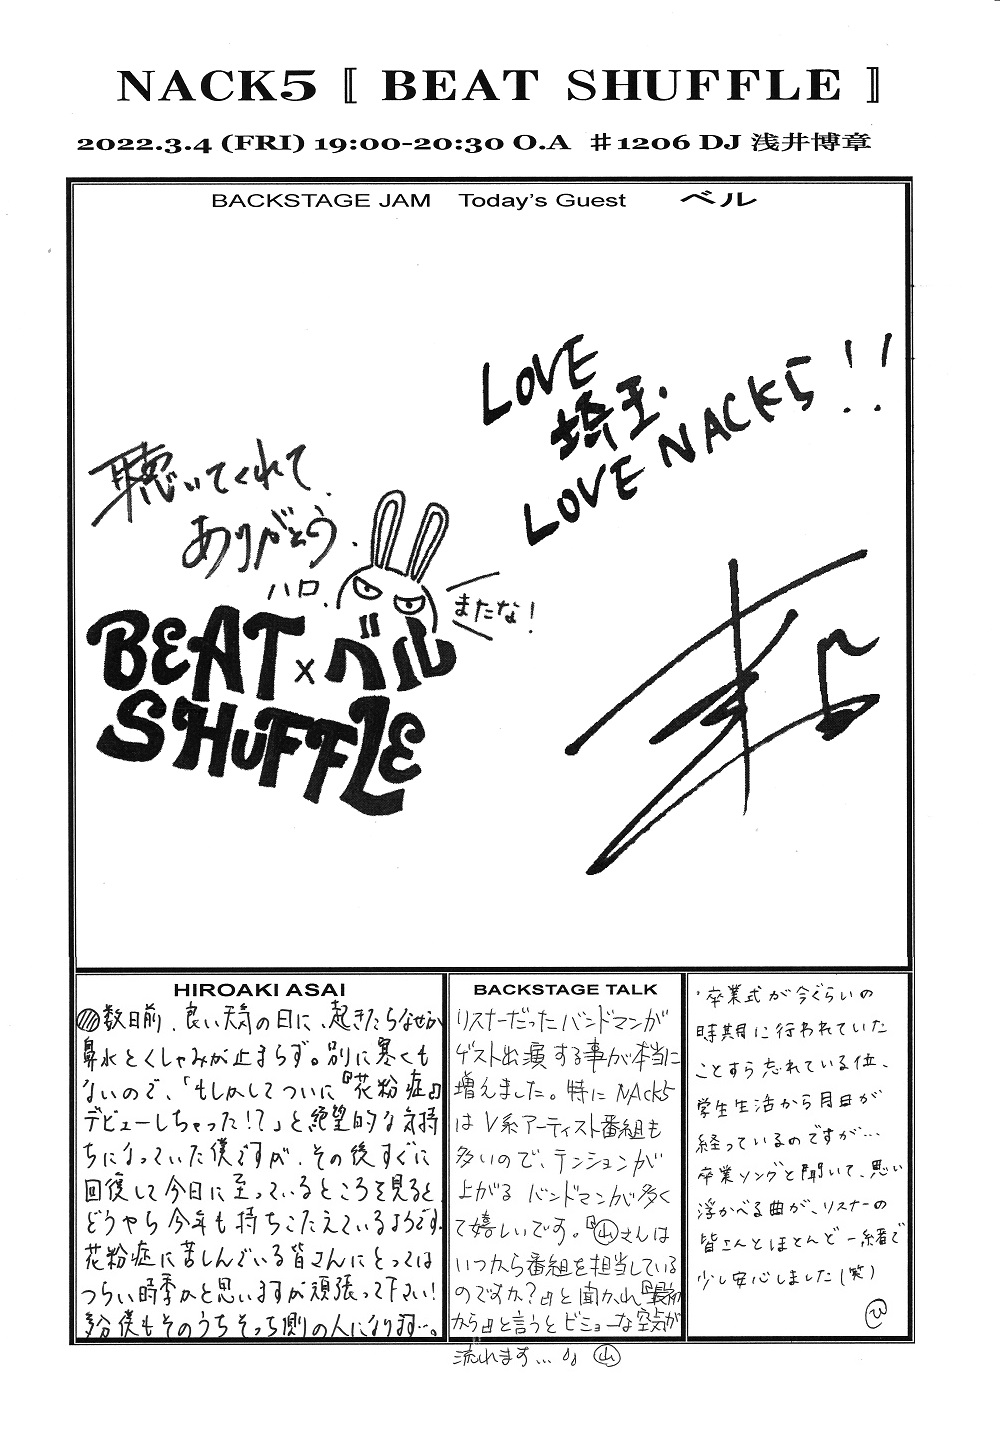 NACK5 〚 BEAT SHUFFLE 〛
2022.3.4 (FRI) 19:00-20:30 O.A ♯1206 DJ 浅井博章
BACKSTAGE JAM Today's Guest ベル
LOVE
埼玉.
LOVE NACK5!!
聴いてくれて
ありがとう.
ハロ.
またな!
BEAT × ベル
SHUFFLE
HIROAKI ASAI
数日前、良い天気の日に、起きたらなぜか
鼻水とくしゃみが止まらず。別に寒くも
ないので、「もしかしてついに『花粉症』
デビューしちゃった!?」と絶望的な気持
ちになっていた僕ですが、その後すぐに
回復して今日に至っているところを見ると、
どうやら今年も持ちこたえているようです。
花粉症に苦しんでいる皆さんにとっては
つらい時季かと思いますが頑張って下さい!
多分僕もそのうちそっち側の人になります…。
BACKSTAGE TALK
リスナーだったバンドマンが
ゲスト出演する事が本当に
増えました。特にNACK5
はV系アーティスト番組も
多いので、テンションが
上がるバンドマンが多く
て嬉しいです。『山さんは
いつから番組を担当している
のですか?』と聞かれ『最初
から』と言うとビミョーな空気が
流れます… 山
・卒業式が今ぐらいの
時期に行われていた
ことすら忘れている位、
学生生活から月日が
経っているのですが…
卒業ソングと聞いて、思い
浮かべる曲が、リスナーの
皆さんとほとんど一緒で
少し安心しました(笑)
ひ